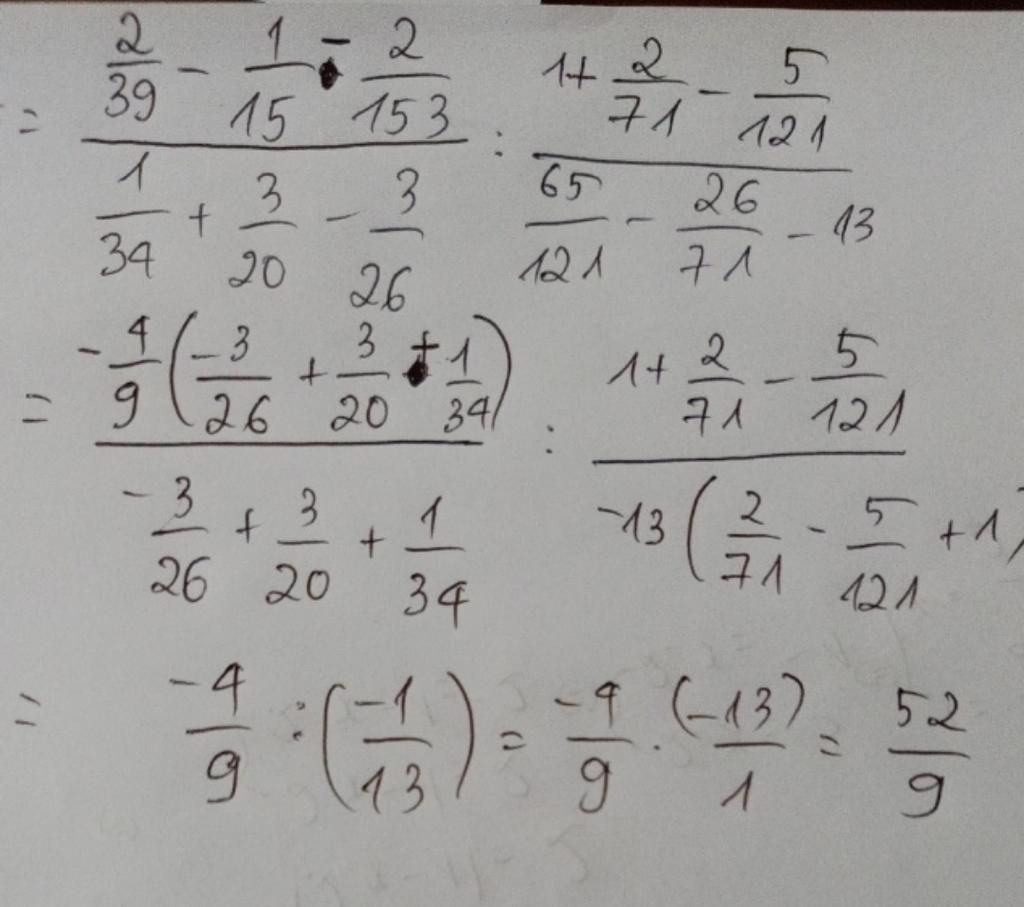 = (2/39 - 1/15 - 2/153)/(1/34 + 3/20 - 3/26) : (1+ 2/71 - 5/121)/(65/121 - 26/71 - 13)
= (-4/9 (-3/26 + 3/20 + 1/34))/(-3/26 + 3/20 + 1/34) : (1+ 2/71 - 5/121)/(-13 (2/71 - 5/121 + 1))
= -4/9 : (-1/13) = -4/9 . (-13)/1 = 52/9